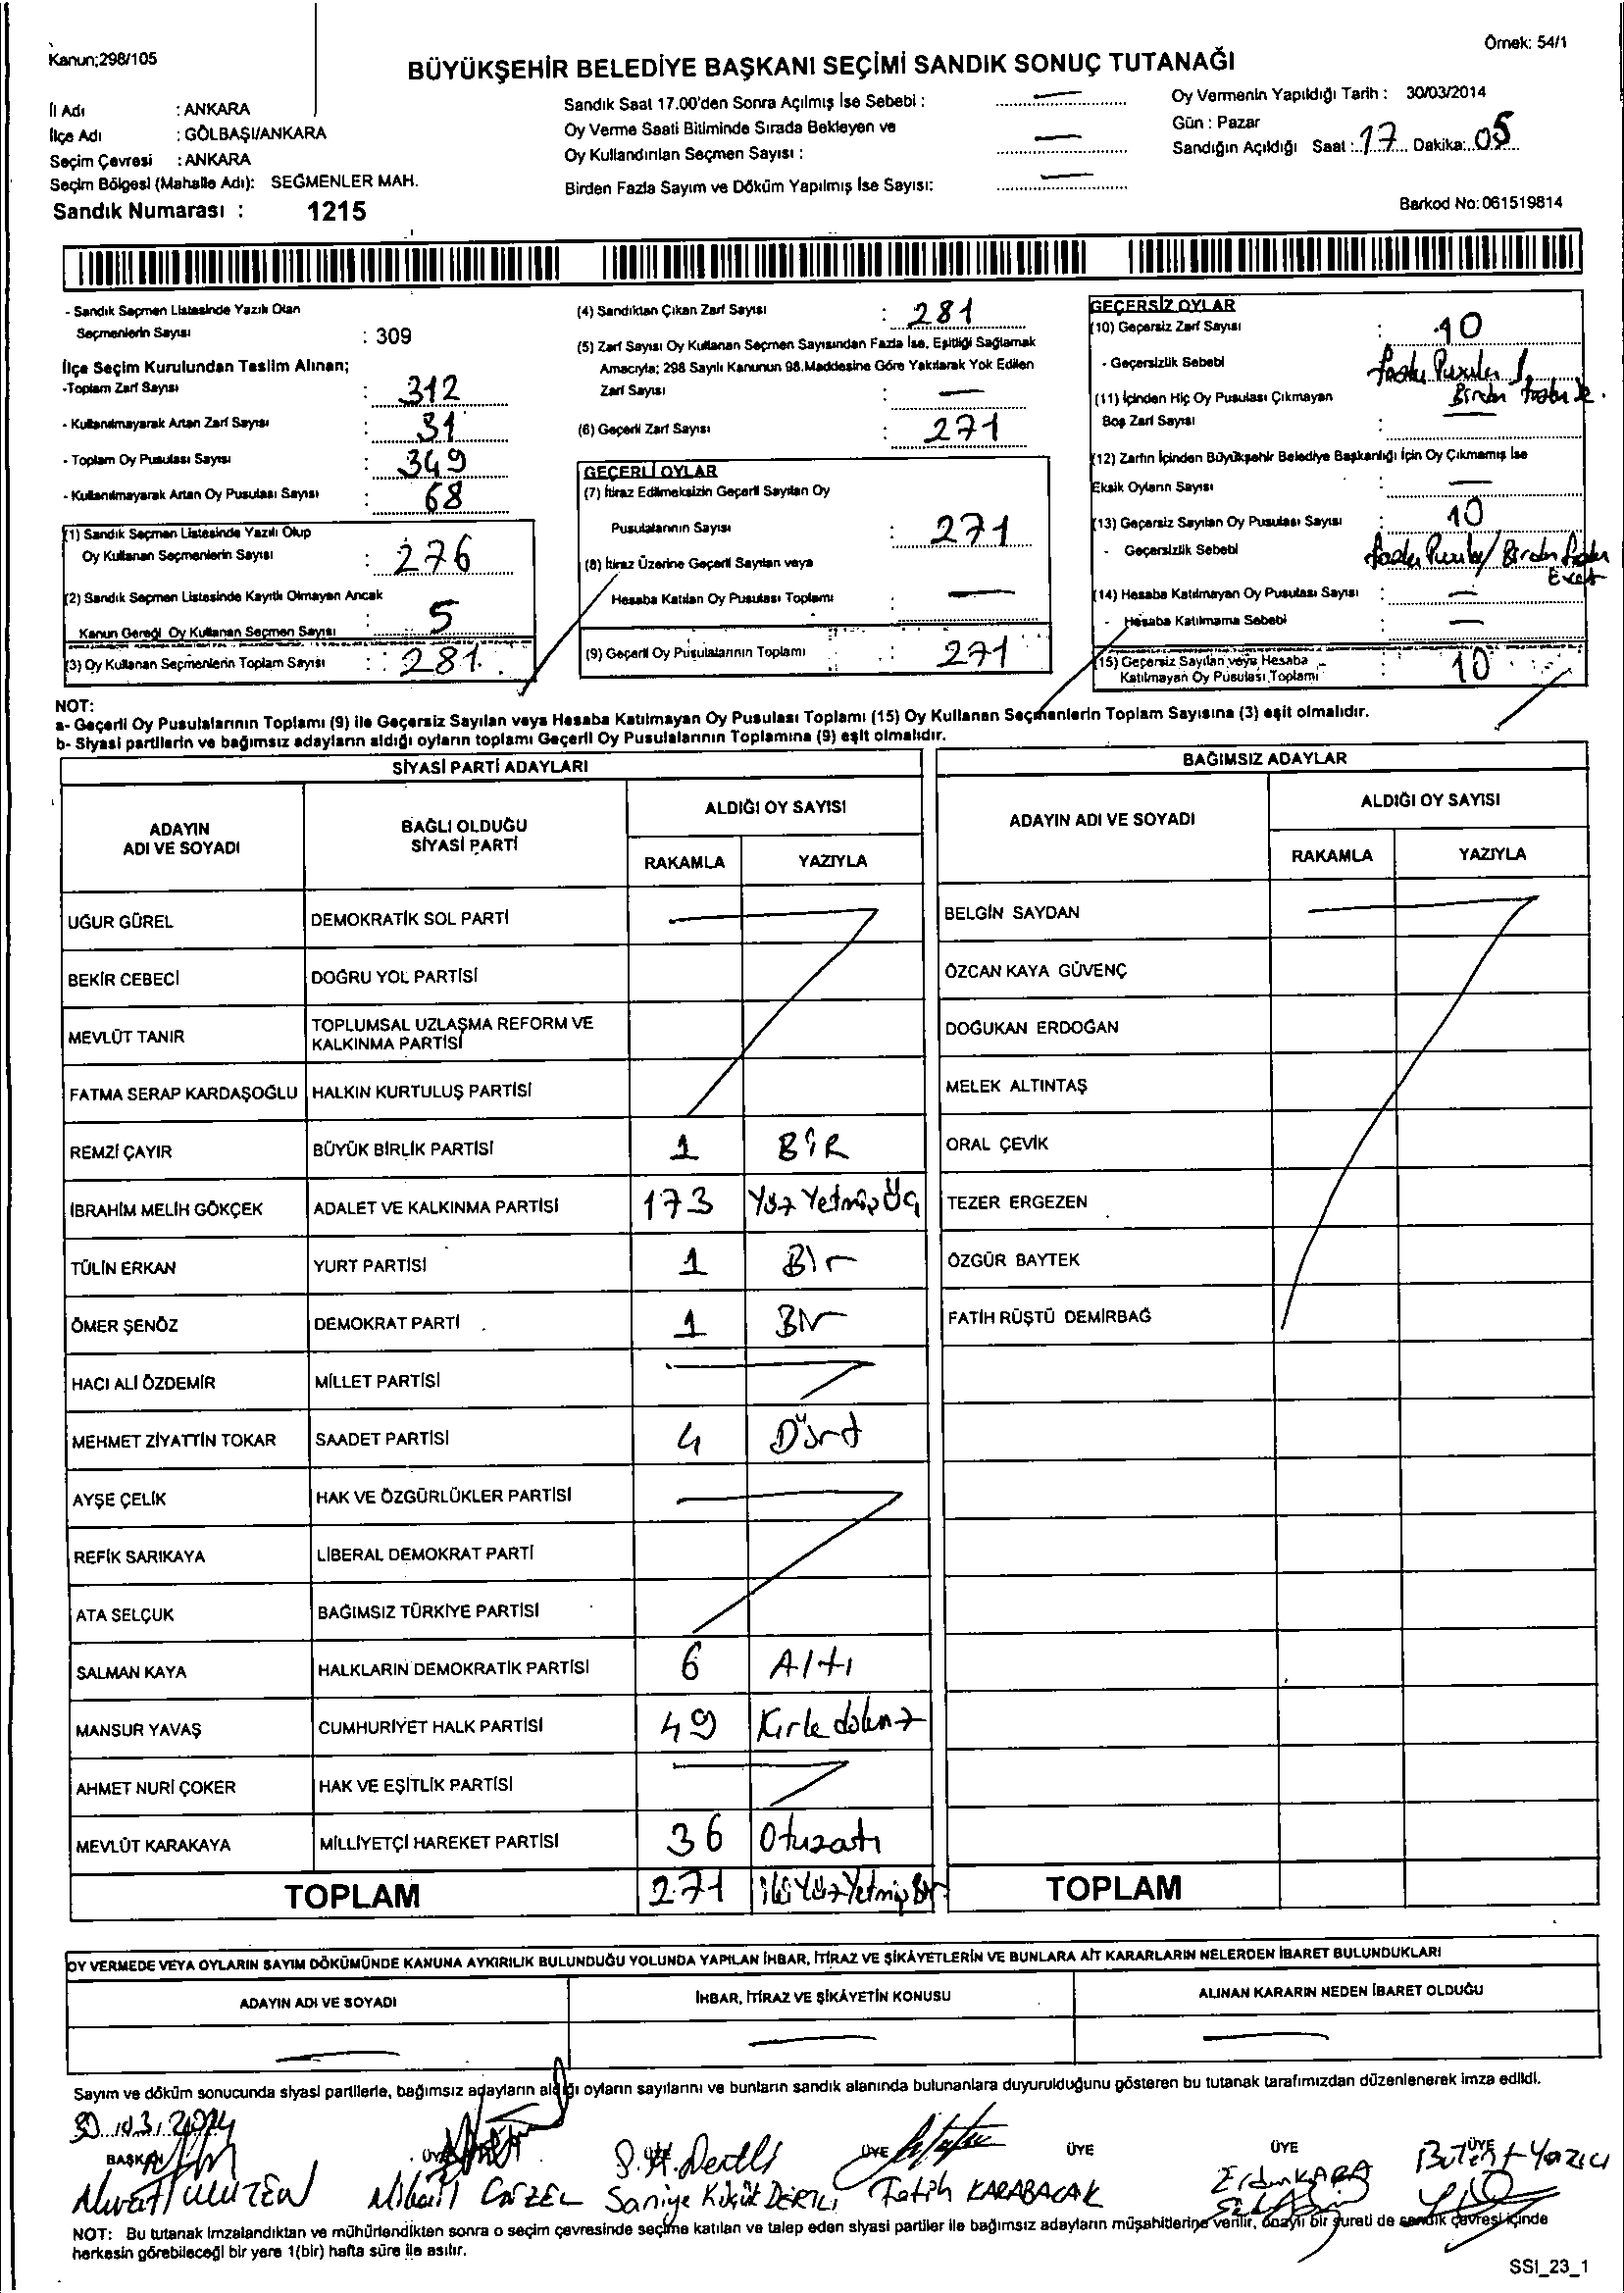 Kanun;298/105
Örnek: 54/1
BÜYÜKŞEHİR BELEDİYE BAŞKANI SEÇİMİ SANDIK SONUÇ TUTANAĞI
İl Adı : ANKARA
İlçe Adı : GÖLBAŞI/ANKARA
Seçim Çevresi : ANKARA
Seçim Bölgesi (Mahalle Adı): SEĞMENLER MAH.
Sandık Numarası : 1215
Sandık Saat 17.00'den Sonra Açılmış İse Sebebi : —
Oy Verme Saati Bitiminde Sırada Bekleyen ve
Oy Kullandırılan Seçmen Sayısı : —
Birden Fazla Sayım ve Döküm Yapılmış İse Sayısı: —
Oy Vermenin Yapıldığı Tarih : 30/03/2014
Gün : Pazar
Sandığın Açıldığı Saat : 17 Dakika: 05
Barkod No: 061519814
- Sandık Seçmen Listesinde Yazılı Olan
Seçmenlerin Sayısı : 309
İlçe Seçim Kurulundan Teslim Alınan;
-Toplam Zarf Sayısı : 312
- Kullanılmayarak Artan Zarf Sayısı : 31
- Toplam Oy Pusulası Sayısı : 349
- Kullanılmayarak Artan Oy Pusulası Sayısı : 68
(1) Sandık Seçmen Listesinde Yazılı Olup
Oy Kullanan Seçmenlerin Sayısı : 276
(2) Sandık Seçmen Listesinde Kayıtlı Olmayan Ancak
Kanun Gereği Oy Kullanan Seçmen Sayısı : 5
(3) Oy Kullanan Seçmenlerin Toplam Sayısı : 281
(4) Sandıktan Çıkan Zarf Sayısı : 281
(5) Zarf Sayısı Oy Kullanan Seçmen Sayısından Fazla İse, Eşitliği Sağlamak
Amacıyla; 298 Sayılı Kanunun 98.Maddesine Göre Yakılarak Yok Edilen
Zarf Sayısı : —
(6) Geçerli Zarf Sayısı : 271
GEÇERLİ OYLAR
(7) İtiraz Edilmeksizin Geçerli Sayılan Oy
Pusulalarının Sayısı : 271
(8) İtiraz Üzerine Geçerli Sayılan veya
Hesaba Katılan Oy Pusulası Toplamı : —
(9) Geçerli Oy Pusulalarının Toplamı : 271
GEÇERSİZ OYLAR
(10) Geçersiz Zarf Sayısı : 10
- Geçersizlik Sebebi
Birden
(11) İçinden Hiç Oy Pusulası Çıkmayan
Boş Zarf Sayısı : —
(12) Zarfın İçinden Büyükşehir Belediye Başkanlığı İçin Oy Çıkmamış İse
Eksik Oyların Sayısı : —
(13) Geçersiz Sayılan Oy Pusulası Sayısı : 10
- Geçersizlik Sebebi
Birden
Evet
(14) Hesaba Katılmayan Oy Pusulası Sayısı : —
- Hesaba Katılmama Sebebi : —
(15) Geçersiz Sayılan veya Hesaba
Katılmayan Oy Pusulası Toplamı : 10
NOT:
a- Geçerli Oy Pusulalarının Toplamı (9) ile Geçersiz Sayılan veya Hesaba Katılmayan Oy Pusulası Toplamı (15) Oy Kullanan Seçmenlerin Toplam Sayısına (3) eşit olmalıdır.
b- Siyasi partilerin ve bağımsız adayların aldığı oyların toplamı Geçerli Oy Pusulalarının Toplamına (9) eşit olmalıdır.
SİYASİ PARTİ ADAYLARI
ADAYIN ADI VE SOYADI
BAĞLI OLDUĞU SİYASİ PARTİ
ALDIĞI OY SAYISI
RAKAMLA YAZIYLA
UĞUR GÜREL DEMOKRATİK SOL PARTİ —
BEKİR CEBECİ DOĞRU YOL PARTİSİ
MEVLÜT TANIR TOPLUMSAL UZLAŞMA REFORM VE KALKINMA PARTİSİ
FATMA SERAP KARDAŞOĞLU HALKIN KURTULUŞ PARTİSİ
REMZİ ÇAYIR BÜYÜK BİRLİK PARTİSİ 1 BİR
İBRAHİM MELİH GÖKÇEK ADALET VE KALKINMA PARTİSİ 173 Yüz Yetmiş Üç
TÜLİN ERKAN YURT PARTİSİ 1 Bir
ÖMER ŞENÖZ DEMOKRAT PARTİ 1 Bir
HACI ALİ ÖZDEMİR MİLLET PARTİSİ —
MEHMET ZİYATTİN TOKAR SAADET PARTİSİ 4 Dört
AYŞE ÇELİK HAK VE ÖZGÜRLÜKLER PARTİSİ —
REFİK SARIKAYA LİBERAL DEMOKRAT PARTİ
ATA SELÇUK BAĞIMSIZ TÜRKİYE PARTİSİ
SALMAN KAYA HALKLARIN DEMOKRATİK PARTİSİ 6 Altı
MANSUR YAVAŞ CUMHURİYET HALK PARTİSİ 49 Kırk dokuz
AHMET NURİ ÇOKER HAK VE EŞİTLİK PARTİSİ —
MEVLÜT KARAKAYA MİLLİYETÇİ HAREKET PARTİSİ 36 Otuzaltı
TOPLAM 271 İki Yüz Yetmiş Bir
BAĞIMSIZ ADAYLAR
ADAYIN ADI VE SOYADI
ALDIĞI OY SAYISI
RAKAMLA YAZIYLA
BELGİN SAYDAN —
ÖZCAN KAYA GÜVENÇ
DOĞUKAN ERDOĞAN
MELEK ALTINTAŞ
ORAL ÇEVİK
TEZER ERGEZEN
ÖZGÜR BAYTEK
FATİH RÜŞTÜ DEMİRBAĞ
TOPLAM
OY VERMEDE VEYA OYLARIN SAYIM DÖKÜMÜNDE KANUNA AYKIRILIK BULUNDUĞU YOLUNDA YAPILAN İHBAR, İTİRAZ VE ŞİKÂYETLERİN VE BUNLARA AİT KARARLARIN NELERDEN İBARET BULUNDUKLARI
ADAYIN ADI VE SOYADI İHBAR, İTİRAZ VE ŞİKÂYETİN KONUSU ALINAN KARARIN NEDEN İBARET OLDUĞU
— — —
Sayım ve döküm sonucunda siyasi partilerle, bağımsız adayların aldığı oyların sayılarını ve bunların sandık alanında bulunanlara duyurulduğunu gösteren bu tutanak tarafımızdan düzenlenerek imza edildi.
30.03.2014
BAŞKAN ÜYE ÜYE ÜYE ÜYE ÜYE ÜYE
Murat ULUTEN Mikail GÜZEL Saniye Küçük DERTLİ Fatih KARABACAK Erdun KARA Bülent Yazıcı
NOT: Bu tutanak imzalandıktan ve mühürlendikten sonra o seçim çevresinde seçime katılan ve talep eden siyasi partiler ile bağımsız adayların müşahitlerine verilir, onaylı bir sureti de sandık çevresi içinde
herkesin görebileceği bir yere 1(bir) hafta süre ile asılır.
SSI_23_1